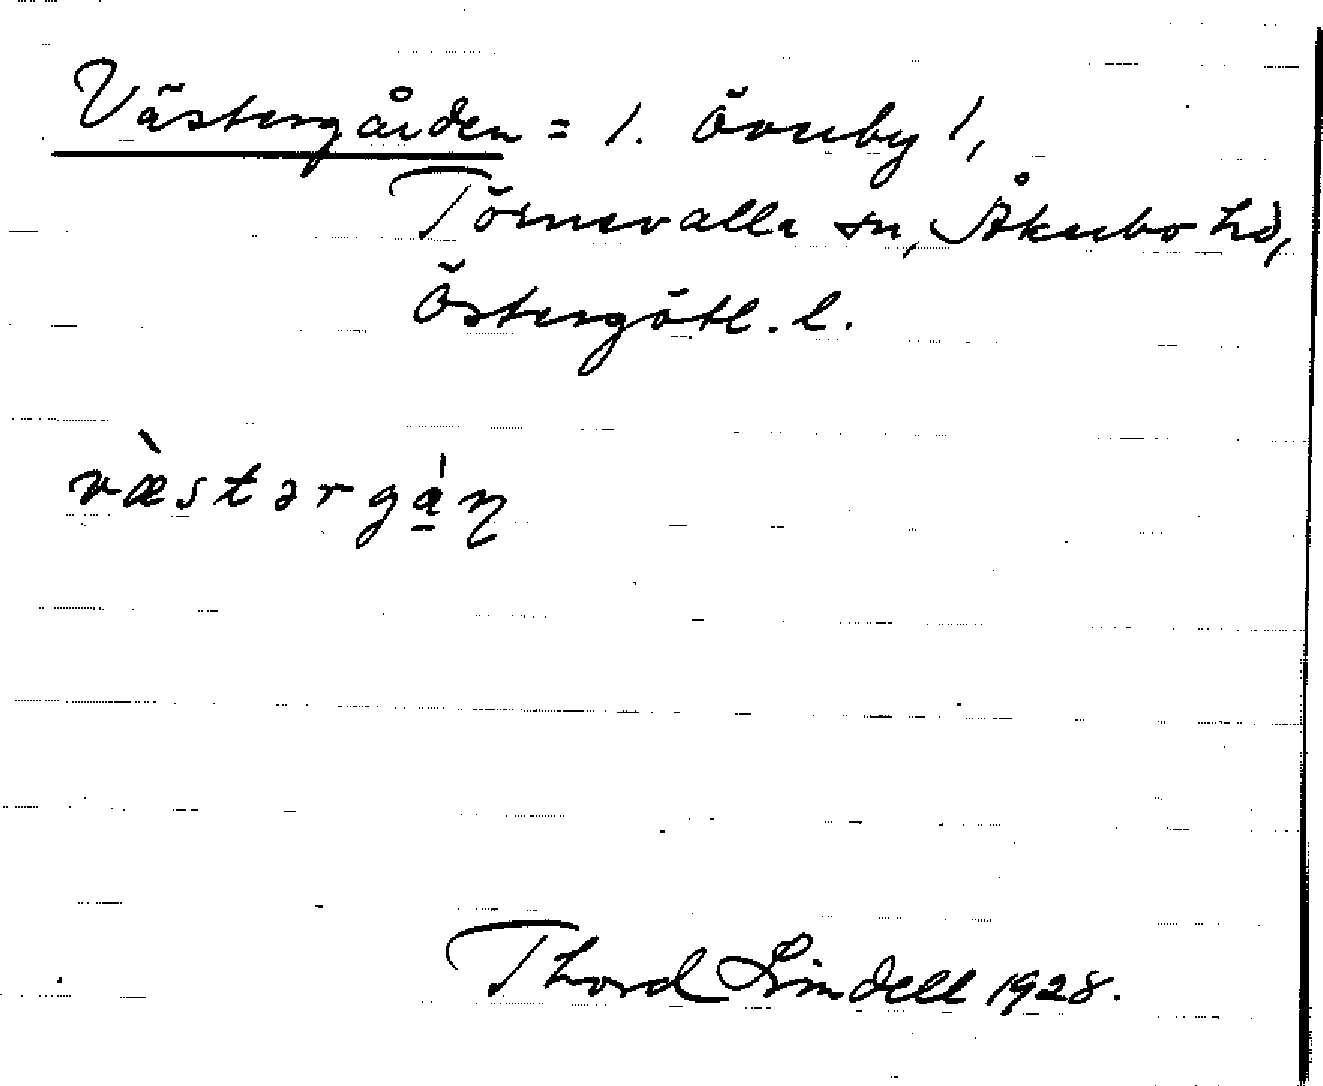 Västergården = 1. Överby 1,
Törnevalla sn, Åkerbo hd,
Östergötl. l.
væ̀stərgá̱ṇ
Thord Lindell 1928.